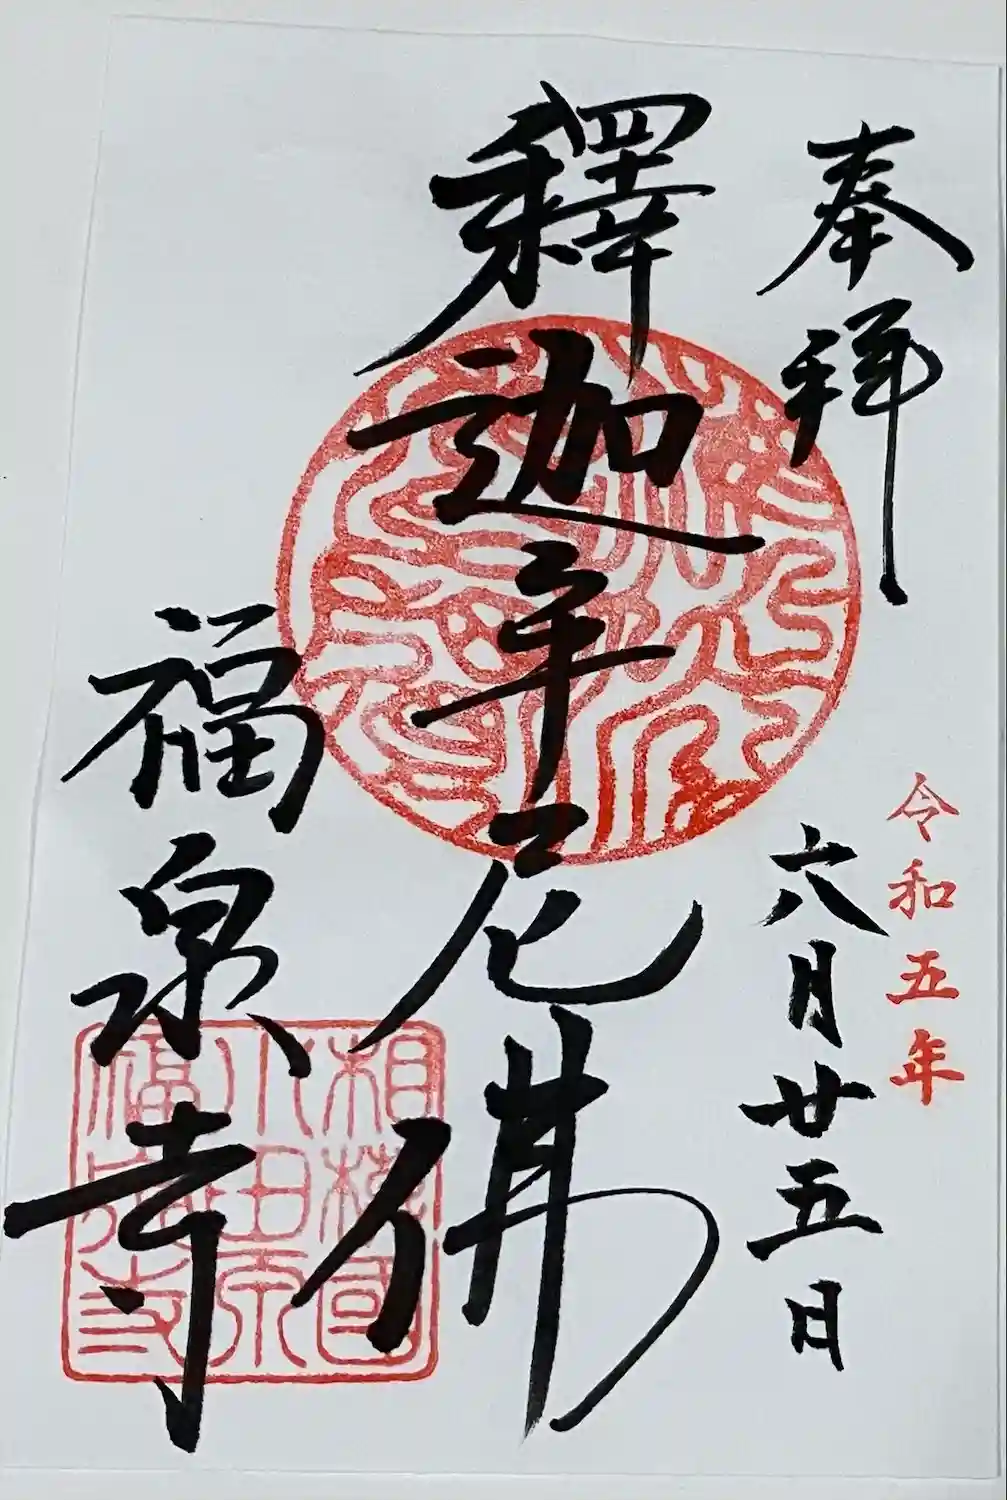 奉拝
令和五年
六月廿五日
釋迦牟尼佛
福泉寺